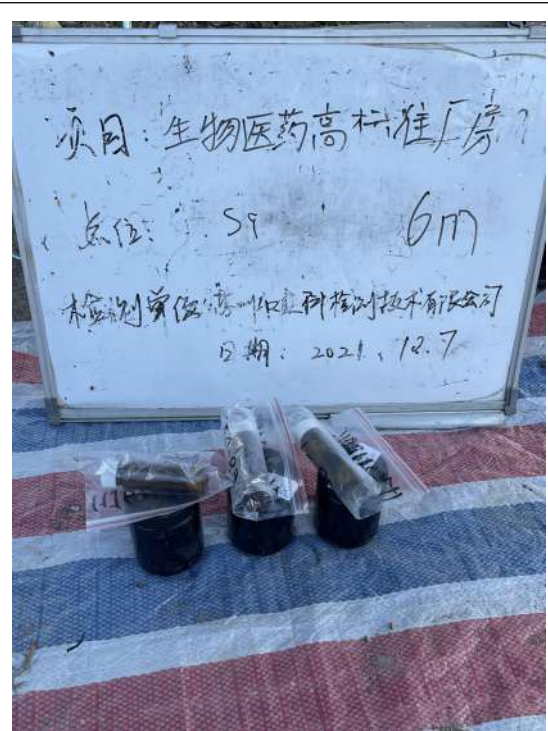 项目：生物医药高标准厂房
点位：S9 6m
检测单位：检测技术有限公司
日期：2021.12.7